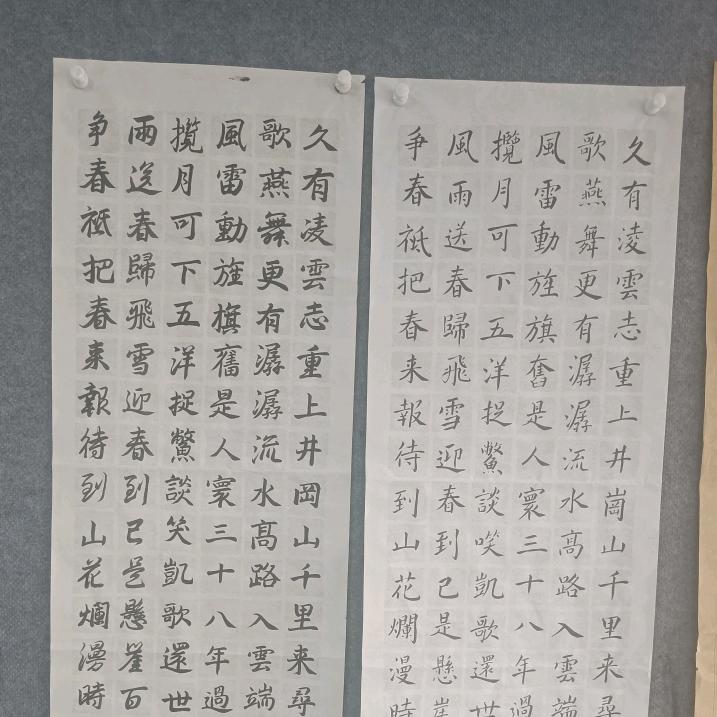 久有凌雲志重上井崗山千里来尋
歌燕舞更有潺潺流水高路入雲端
風雷動旌旗奮是人寰三十八年過
攬月可下五洋捉鱉談咲凱歌還世
風雨送春歸飛雪迎春到已是懸崖
争春祇把春来報待到山花爛漫時
久有凌雲志重上井岡山千里来尋
歌燕舞更有潺潺流水髙路入雲端
風雷動旌旗奮是人寰三十八年過
攬月可下五洋捉鱉談笑凱歌還世
雨送春歸飛雪迎春到已是懸崖百
争春祇把春来報待到山花爛漫時